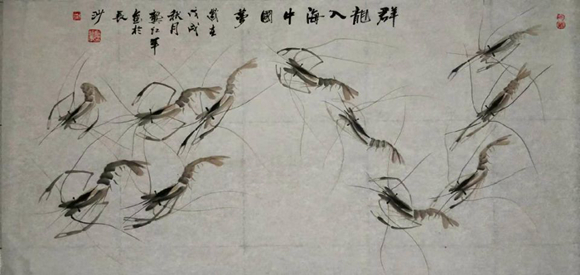 群龍入海中國夢
歲在
戊戌
秋月
红軍
畫於
長
沙